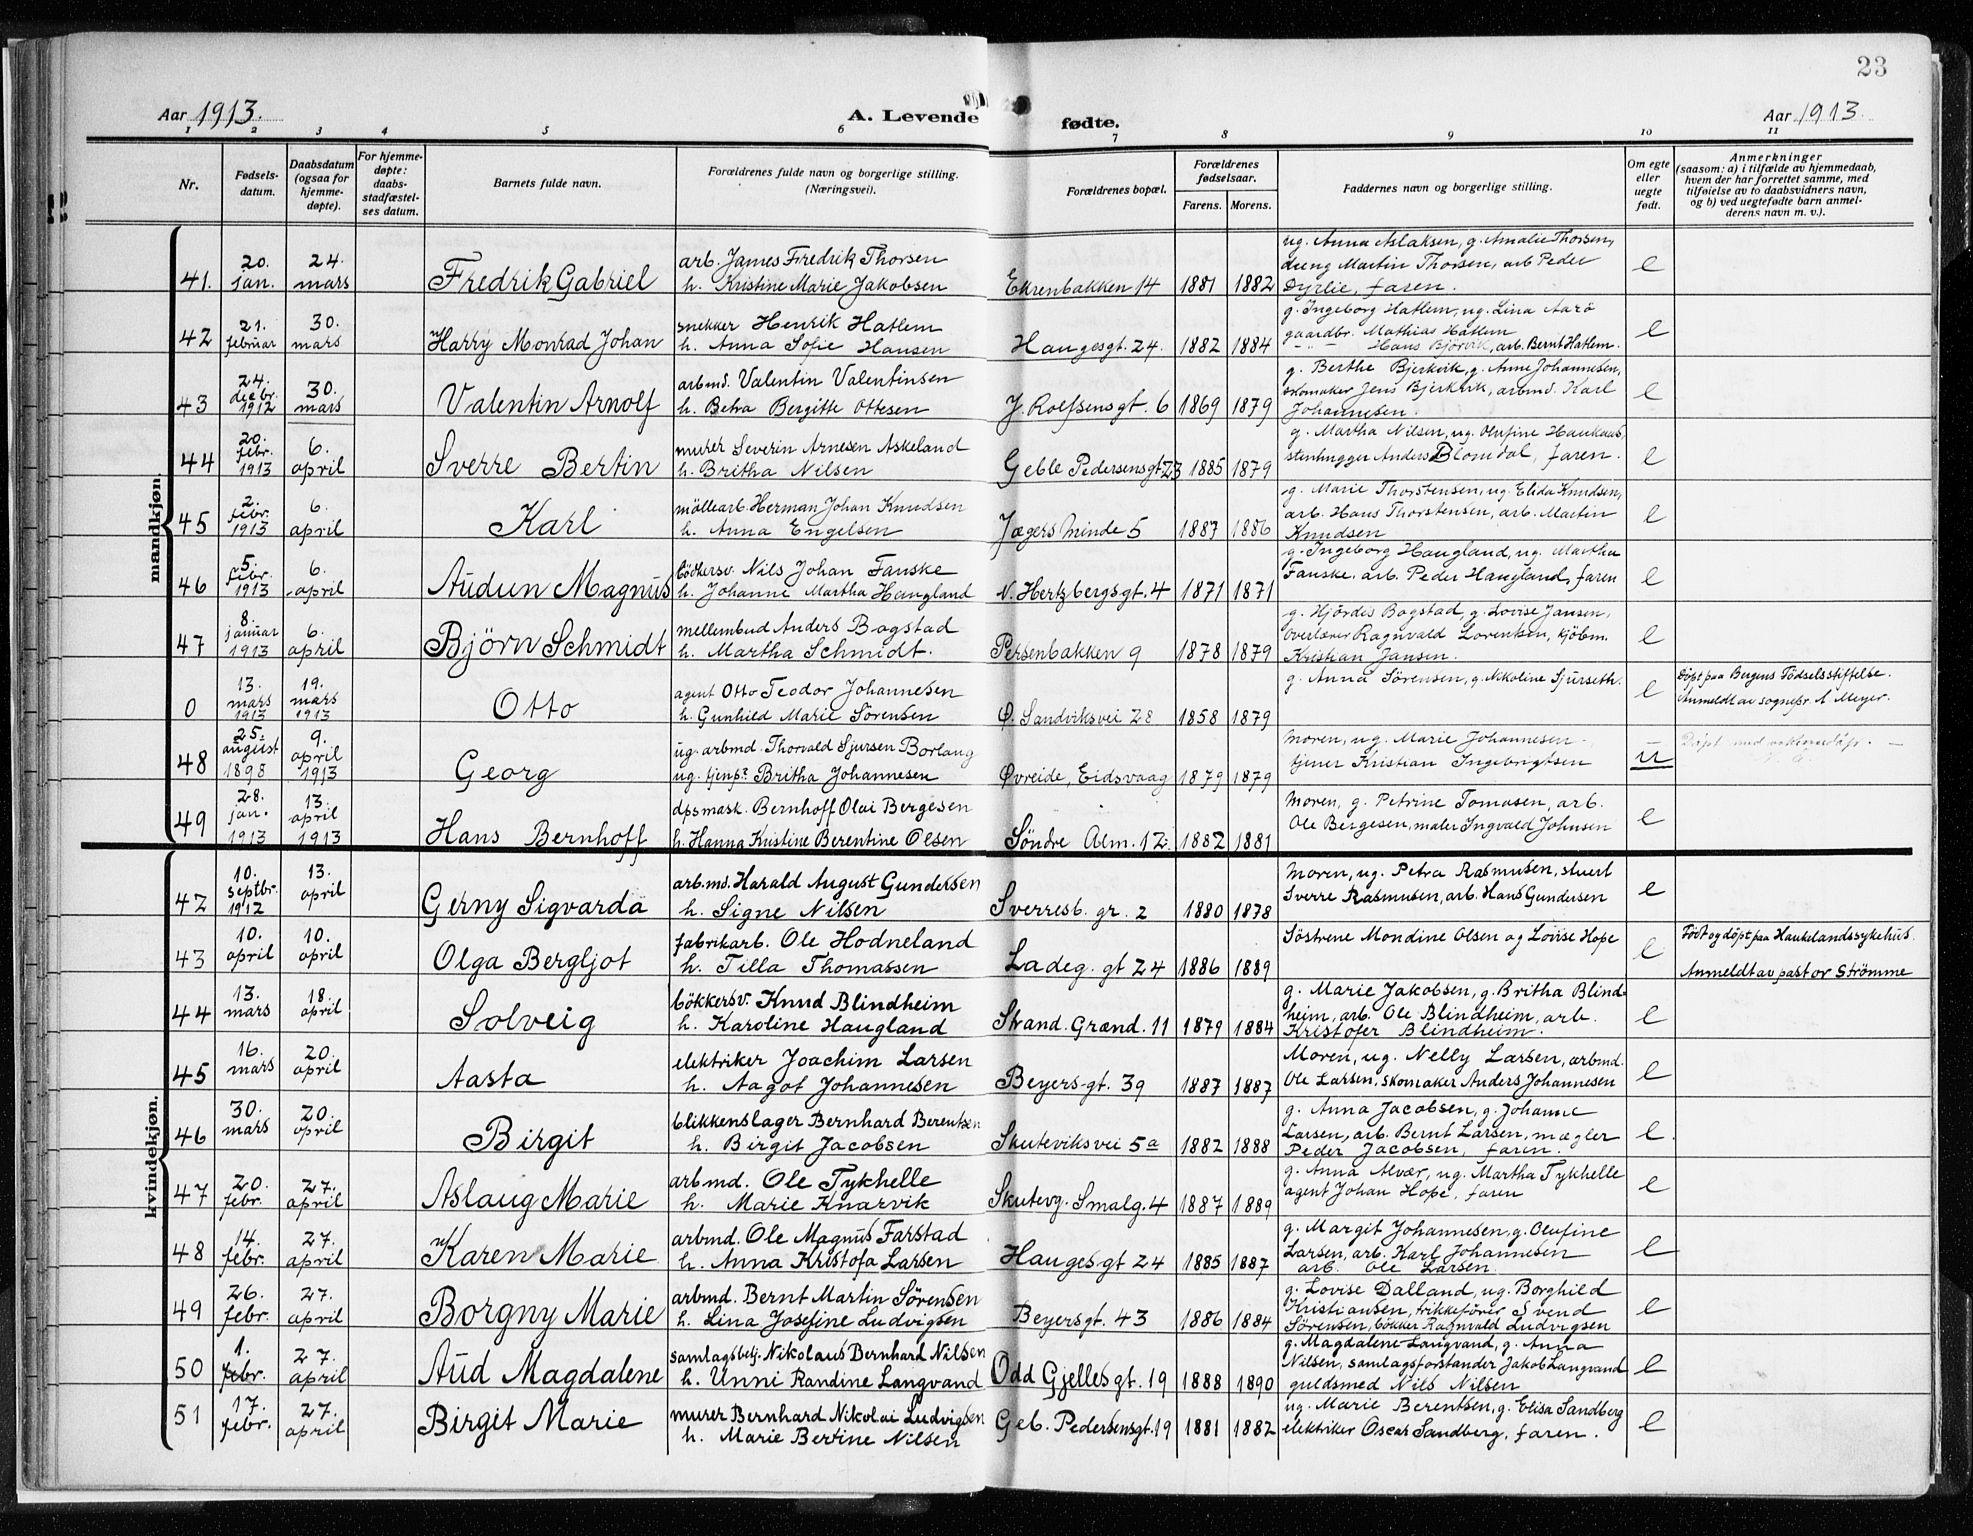 23
Aar 1913.
A. Levende fødte.
Aar 1913.
1 2 3 4 5 6 7 8 9 10 11
Nr.
Fødsels-
datum.
Daabsdatum
(ogsaa for
hjemme-
døpte).
For hjemme-
døpte:
daabs-
stadfæstel-
ses datum.
Barnets fulde navn.
Forældrenes fulde navn og borgerlige stilling.
(Næringsvei).
Forældrenes bopæl.
Forældrenes
fødselsaar.
Farens. Morens.
Faddernes navn og borgerlige stilling.
Om egte
eller
uegte
født.
Anmerkninger
(saasom: a) i tilfælde av hjemmedaab,
hvem der har forrettet samme, med
tilføielse av to daabsvidners navn,
og b) ved uegtefødte barn anmel-
derens navn m. v.).
mandkjøn.
41. 20. jan. 24. mars Fredrik Gabriel
arb. James Fredrik Thorsen
h. Kristine Marie Jakobsen
Ekrenbakken 14 1881 1882
ug. Anna Aslaksen, g. Amalie Thorsen,
dreng Martin Thorsen, arb. Peder
Dyrlie, faren.
e
42 21. februar 30. mars Harry Monrad Johan
snekker Henrik Hatlem
h. Anna Sofie Hansen
Haugesgt. 24. 1882 1884
g. Ingeborg Hatlem, ug. Lina Aarö
gaardbr. Mathias Hatlem
– " – Hans Björvik, arb. Bernt Hatlem.
e
43 24. decbr. 1912 30. mars Valentin Arnolf
arbmd. Valentin Valentinsen
h. Betra Bergitte Ottesen
J. Rolfsensgt. 6 1869 1879
g. Berthe Bjerkvik, g. Anne Johannesen,
skomaker Jens Bjerkvik, arbmd. Karl
Johannesen.
e
44 20. febr. 1913 6. april Sverre Bertin
murer Severin Arnesen Askeland
h. Britha Nilsen
Geble Pedersensgt 23 1885 1879
g. Martha Nilsen, ug. Olufine Haukaas,
stenhugger Anders Blomdal, faren.
e
45 2. febr. 1913 6. april Karl
möllearb. Herman Johan Knudsen
h. Anna Engelsen
Jægers Minde 5 1887 1886
g. Marie Thorstensen, ug. Elida Knudsen,
arb. Hans Thorstensen, arb. Martin
Knudsen
e
46 5. febr. 1913 6. april Audun Magnus
bödkersv. Nils Johan Fanske
h. Johanne Martha Haugland
N. Hertzbergsgt. 4 1871 1871
g. Ingeborg Haugland, ug. Martha
Fanske, arb. Peder Haugland, faren
e
47 8. januar 1913 6. april Björn Schmidt
mellembud Anders Bogstad
h. Martha Schmidt.
Persenbakken 9 1878 1879
g. Hjördis Bogstad, g. Lovise Jansen,
overlærer Ragnvald Lorentsen, kjöbm.
Kristian Jansen.
e
0 13. mars 1913 19. mars 1913 Otto
agent Otto Teodor Johannesen
h. Gunhild Marie Sörensen
Ø. Sandviksvei 28 1858 1879
g. Anna Sörensen, g. Nikoline Sjurseth.
e
Döpt paa Bergens Födselsstiftelse.
Anmeldt av sognepr. A Meyer.
48 25. august 1898 9. april 1913 Georg
ug. arbmd. Thorvald Sjursen Borlaug
ug. tjenp. Britha Johannesen
Øvreide, Eidsvaag 1879 1879
Moren, ug. Marie Johannesen
tjener Kristian Ingebrigtsen
u
49 28. jan. 1913 13. april 1913 Hans Bernhoff
dpsmask. Bernhoff Olai Bergesen
h. Hanna Kristine Berentine Olsen
Söndre Alm. 12. 1882 1881
Moren, g. Petrine Tomasen, arb.
Ole Bergesen, maler Ingvald Johnsen
e
kvindekjøn.
42 10. septbr. 1912 13. april Gerny Sigvarda
arb.md. Harald August Gundersen
h. Signe Nilsen
Sverresb. gr. 2 1880 1878
Moren, ug. Petra Rasmusen, stuert
Sverre Rasmusen, arb. Hans Gundersen
e
43 10. april 10. april Olga Bergljot
fabrikarb. Ole Hodneland
h. Tilla Thomassen
Ladeg. gt 24 1886 1889
Söstrene Mondine Olsen og Lovise Hope
e
Född og döpt paa Haukelandssykehus.
Anmeldt av pastor Strömme
44 13. mars 18. april Solveig
bökkersv. Knud Blindheim
h. Karoline Haugland
Strand. Grænd. 11 1879 1884
g. Marie Jakobsen, g. Britha Blind-
heim, arb. Ole Blindheim, arb.
Kristofer Blindheim.
e
45 16. mars 20. april Aasta
elektriker Joachim Larsen
h. Aagot Johannesen
Beyers-gt. 39 1887 1887
Moren, ug. Nelly Larsen, arbmd.
Ole Larsen, skomaker Anders Johannesen
e
46 30. mars 20. april Birgit
blikkenslager Bernhard Berentsen
h. Birgit Jacobsen
Skuteviksvei 5a 1882 1888
g. Anna Jacobsen, g. Johanne
Larsen, arb. Bernt Larsen, mægler
Peder Jacobsen, faren.
e.
47 20. febr. 27. april Aslaug Marie
arbmd. Ole Tykhelle
h. Marie Knarvik
Skutevg. Smalg. 4 1887 1889
g. Anna Alvær, ug. Martha Tykhelle
agent Johan Hope, faren
e
48 14. febr. 27. april Karen Marie
arbmd. Ole Magnus Farstad
h. Anna Kristofa Larsen
Hauges-gt 24 1885 1887
g. Margit Johannesen, g. Olufine
Larsen, arb. Karl Johannesen
arb. Ole Larsen.
e
49 26. febr. 27. april Borgny Marie
arbmd. Bernt Martin Sörensen
h. Lina Josefine Ludvigsen
Beyersgt. 43 1886 1884
g. Lovise Dalland, ug. Borghild
Kristiansen, trikkefører Svend
Sörensen, bökker Ragnvald Ludvigsen
e
50 1. febr. 27. april Aud Magdalene
samlagsbetj. Nikolaus Bernhard Nilsen
h. Unni Randine Langvand
Odd Gjellesgt. 19 1888 1890
g. Magdalene Langvand, g. Anna
Nilsen, samlagsforstander Jakob Langvand
guldsmed Nils Nilsen
e
51 17. febr. 27. april Birgit Marie
murer Bernhard Nikolai Ludvigsen
h. Marie Bertine Nilsen
Geb. Pedersensgt. 19 1881 1882
ug. Marie Berentsen, g. Elisa Sandberg
elektriker Oscar Sandberg, faren.
e